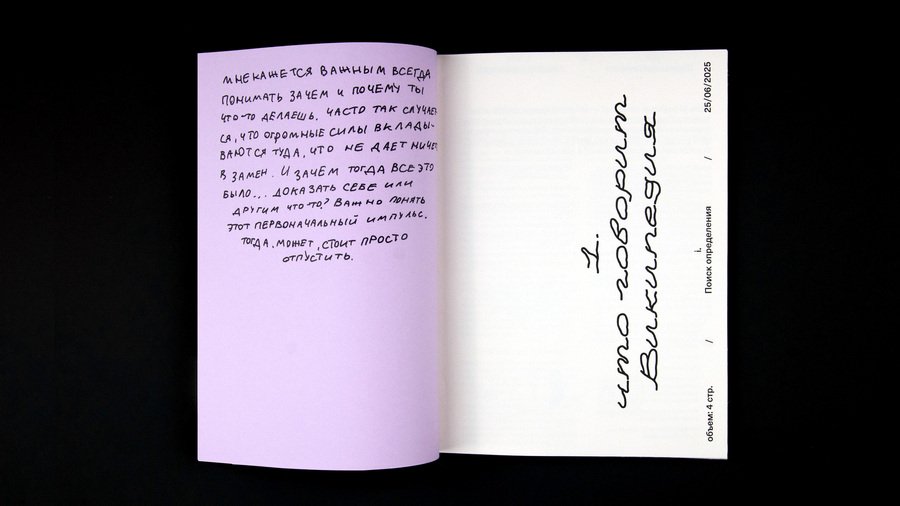 МНЕ КАЖЕТСЯ ВАЖНЫМ ВСЕГДА
ПОНИМАТЬ ЗАЧЕМ И ПОЧЕМУ ТЫ
ЧТО-ТО ДЕЛАЕШЬ. ЧАСТО ТАК СЛУЧАЕТ
СЯ, ЧТО ОГРОМНЫЕ СИЛЫ ВКЛАДЫ-
ВАЮТСЯ ТУДА, ЧТО НЕ ДАЕТ НИЧЕГ
В ЗАМЕН. И ЗАЧЕМ ТОГДА ВСЕ ЭТО
БЫЛО... ДОКАЗАТЬ СЕБЕ ИЛИ
ДРУГИМ ЧТО-ТО? ВАЖНО ПОНЯТЬ
ЭТОТ ПЕРВОНАЧАЛЬНЫЙ ИМПУЛЬС.
ТОГДА. МОЖЕТ, СТОИТ ПРОСТО
ОТПУСТИТЬ.
1.
что говорит
Википедия
объем: 4 стр. / i. Поиск определения / 25/06/2025